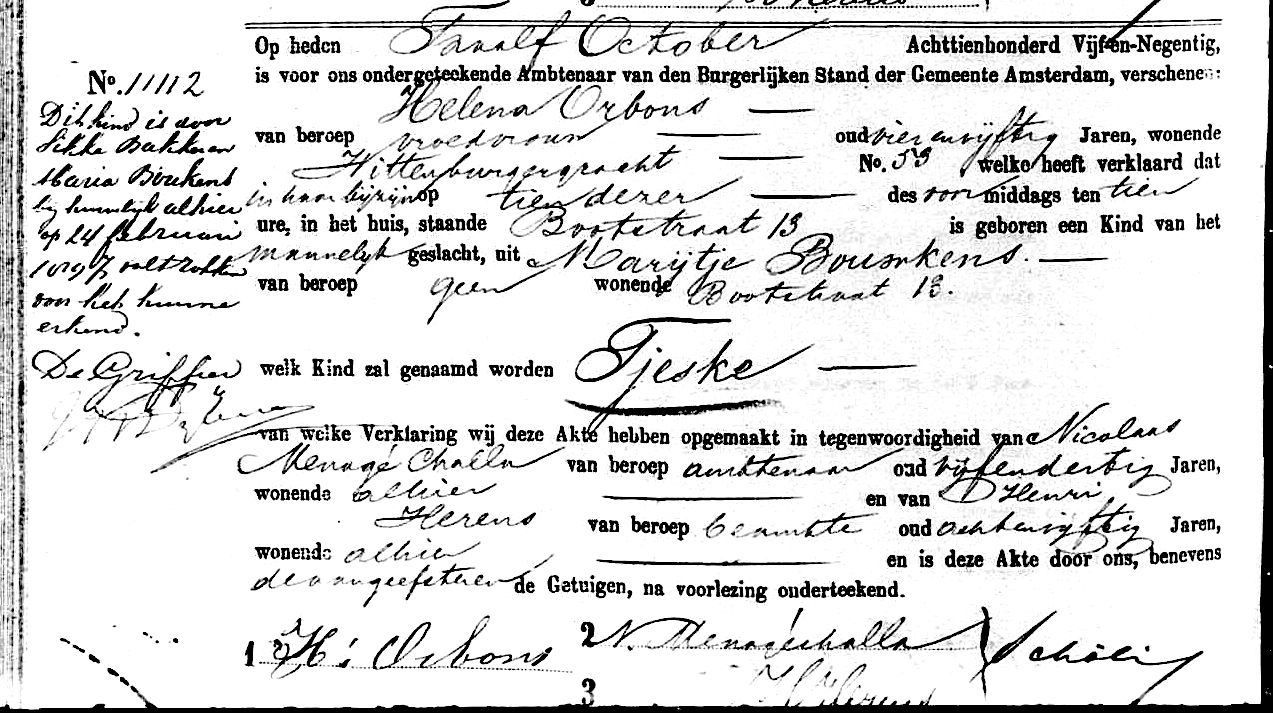 Op heden Twaalf October Achttienhonderd Vijf-en-Negentig,
is voor ons ondergeteekende Ambtenaar van den Burgerlijken Stand der Gemeente Amsterdam, verschenen:
Helena Orbons
van beroep vroedvrouw oud vierenvijftig Jaren, wonende
Wittenburgergracht No. 53 welke heeft verklaard dat
in haar bijzijn op tien dezer des voormiddags ten tien
ure, in het huis, staande Bootstraat 13 is geboren een Kind van het
mannelijk geslacht, uit Marijtje Bourkens.
van beroep geen wonende Bootstraat 13.
welk Kind zal genaamd worden Tjeske
van welke Verklaring wij deze Akte hebben opgemaakt in tegenwoordigheid van Nicolaas
Menagé Challa van beroep ambtenaar oud vijfendertig Jaren,
wonende alhier en van Henri
Herens van beroep beambte oud achtenvijftig Jaren,
wonende alhier en is deze Akte door ons, benevens
de aangeefster en de Getuigen, na voorlezing onderteekend.
1 H. Orbons 2 N. Menagéchalla
3 H Herens
No. 11112
Dit kind is door
Sikke Bakker en
Maria Boukens
bij huwelijk alhier
op 24 februari
1897 voltrokken
voor het hunne
erkend.
De Griffier